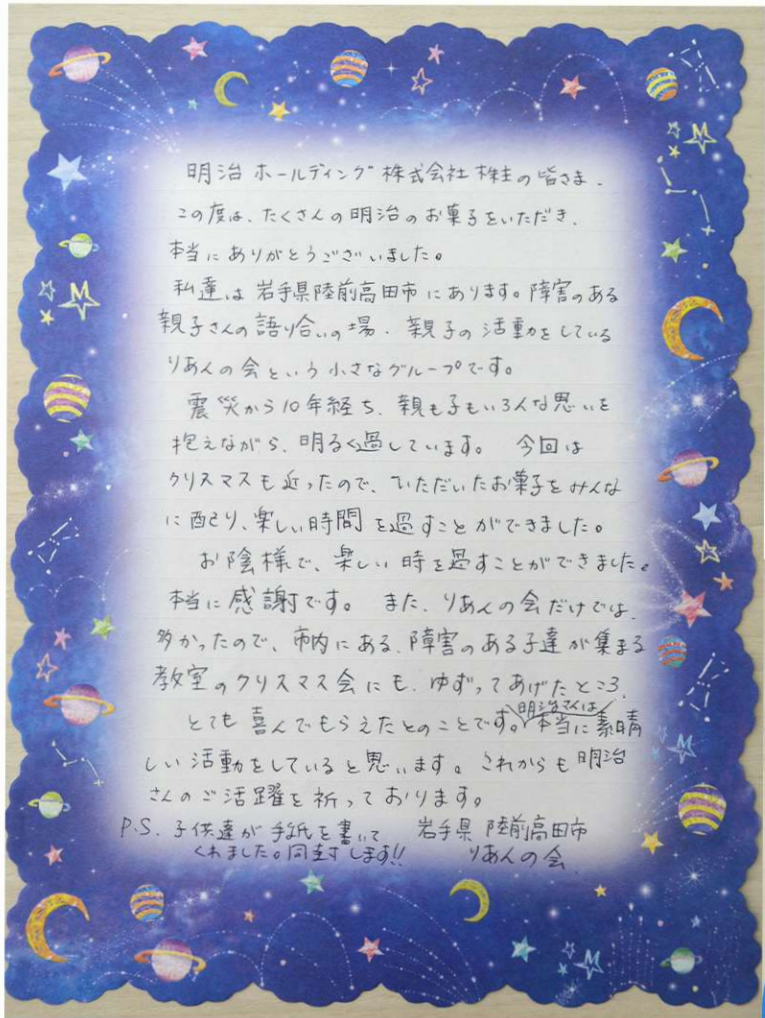 明治ホールディング株式会社株主の皆さま、
この度は、たくさんの明治のお菓子をいただき、
本当にありがとうございました。
私達は岩手県陸前高田市にあります。障害のある
親子さんの語り合いの場、親子の活動をしている
りあんの会という小さなグループです。
震災から10年経ち、親も子もいろんな思いを
抱えながら、明るく過しています。 今回は
クリスマスも近ったので、いただいたお菓子をみんな
に配り、楽しい時間を過すことができました。
お陰様で、楽しい時を過すことができました。
本当に感謝です。 また、りあんの会だけでは、
多かったので、市内にある、障害のある子達が集まる
教室のクリスマス会にも、ゆずってあげたところ、
とても喜んでもらえたとのことです。明治さんは本当に素晴
しい活動をしていると思います。これからも明治
さんのご活躍を祈っております。
P.S. 子供達が手紙を書いて
くれました。同封します!!
岩手県 陸前高田市
りあんの会